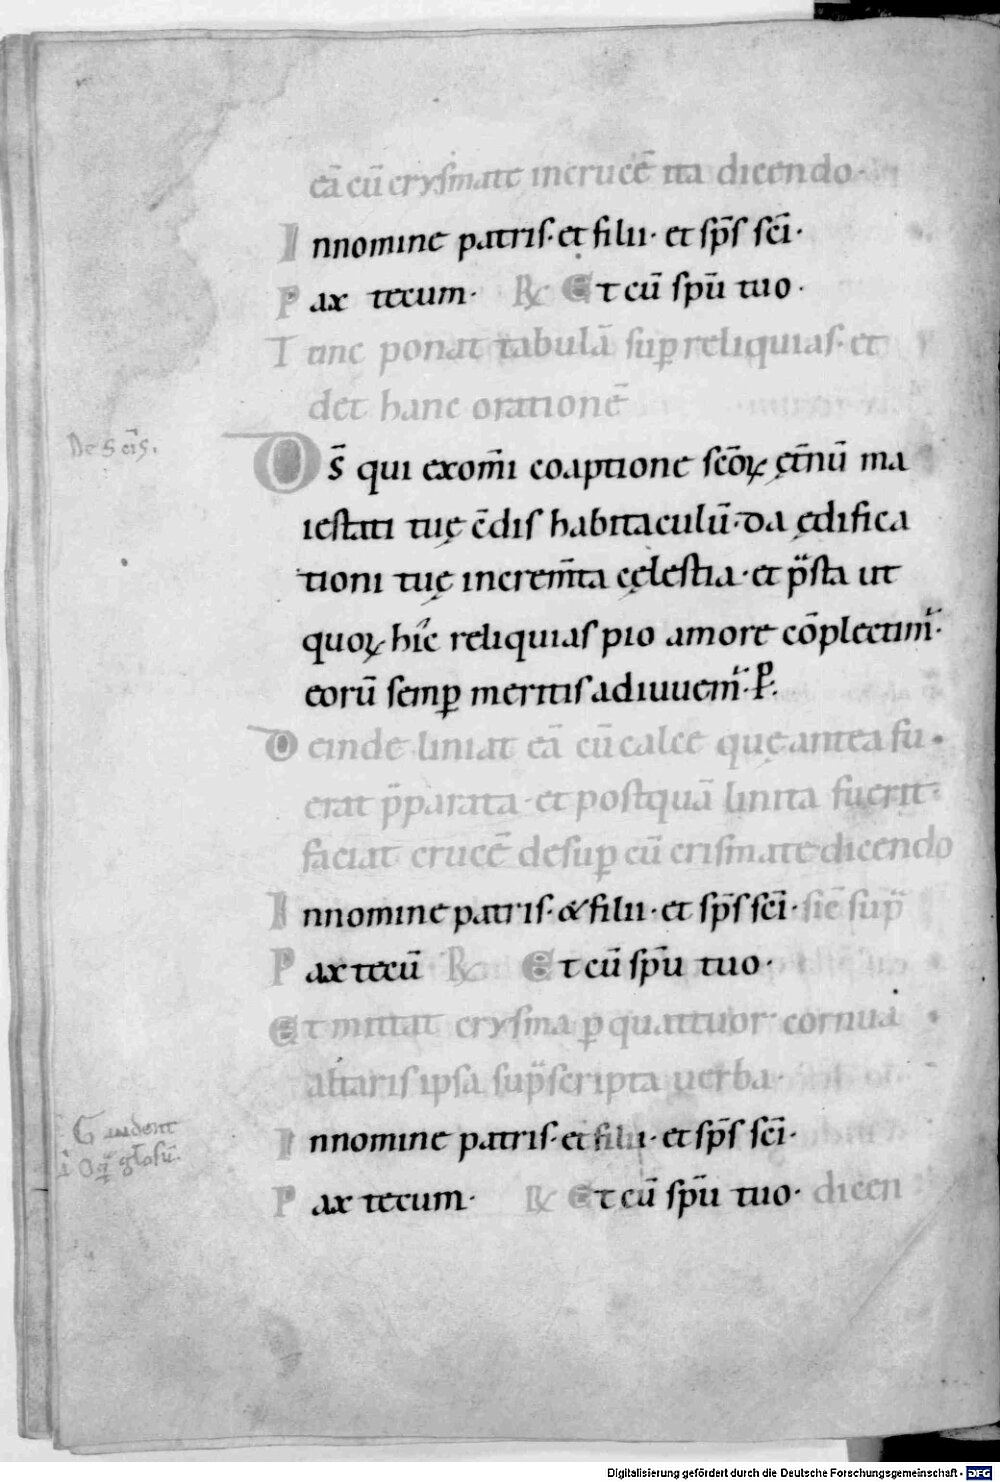 eā cū crysmate in crucē ita dicendo·
Innomine patris· et filii· et sp̄s sc̄i·
Pax tecum· R̷ Et cū sp̄u tuo·
Tunc ponat tabulā sup̱ reliquias· et
det hanc orationē
De sc̄is.
Ds̄ qui ex om̄i coaptione sc̄oꝝ ęt̄nū ma
iestati tuę c̄dis habitaculū· da ędifica
tioni tuę increm̄ta cęlestia· et p̄sta ut
quoꝝ hic reliquias pio amore cōplectim᷑·
eorū semꝑ meritis adiuuem᷑· P̱.
Deinde liniat eā cū calce quę antea fu
erat p̄parata· et postquā linita fuerit·
faciat crucē desuꝑ cū crismate dicendo
Innomine patris· & filii· et sp̄s sc̄i· sic̄ sup̄
Pax tecū R̷ Et cū sp̄u tuo·
Et mittat crysma ꝑ quattuor cornua
altaris ipsa sup̄scripta uerba·
Gaudent
Innomine patris· et filii· et sp̄s sc̄i·
Pax tecum· R̷ Et cū sp̄u tuo· dicen
Digitalisierung gefördert durch die Deutsche Forschungsgemeinschaft - DFG